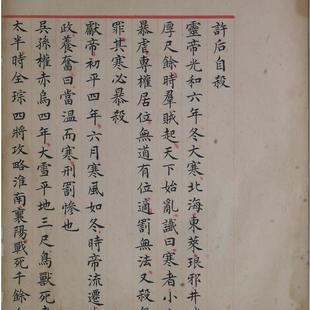 許后自殺
靈帝光和六年冬大寒北海東萊琅邪井中
厚尺餘時羣賊起天下始亂讖曰寒者小人
暴虐專權居位無道有位適罰無法又殺無
罪其寒必暴殺
獻帝初平四年六月寒風如冬時帝流遷失
政養奮曰當溫而寒刑罰慘也
吳孫權赤烏四年大雪平地三尺鳥獸死者
太半時全琮四將攻略淮南襄陽戰死千餘人